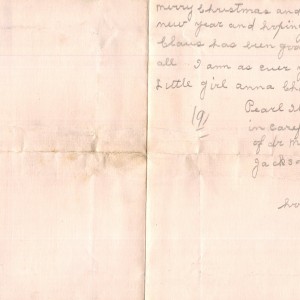 mirry Christmas and
new year and hoping
Claus has been
all I am as ever
Little girl anna
Pearl
in care
of dr
Jackso